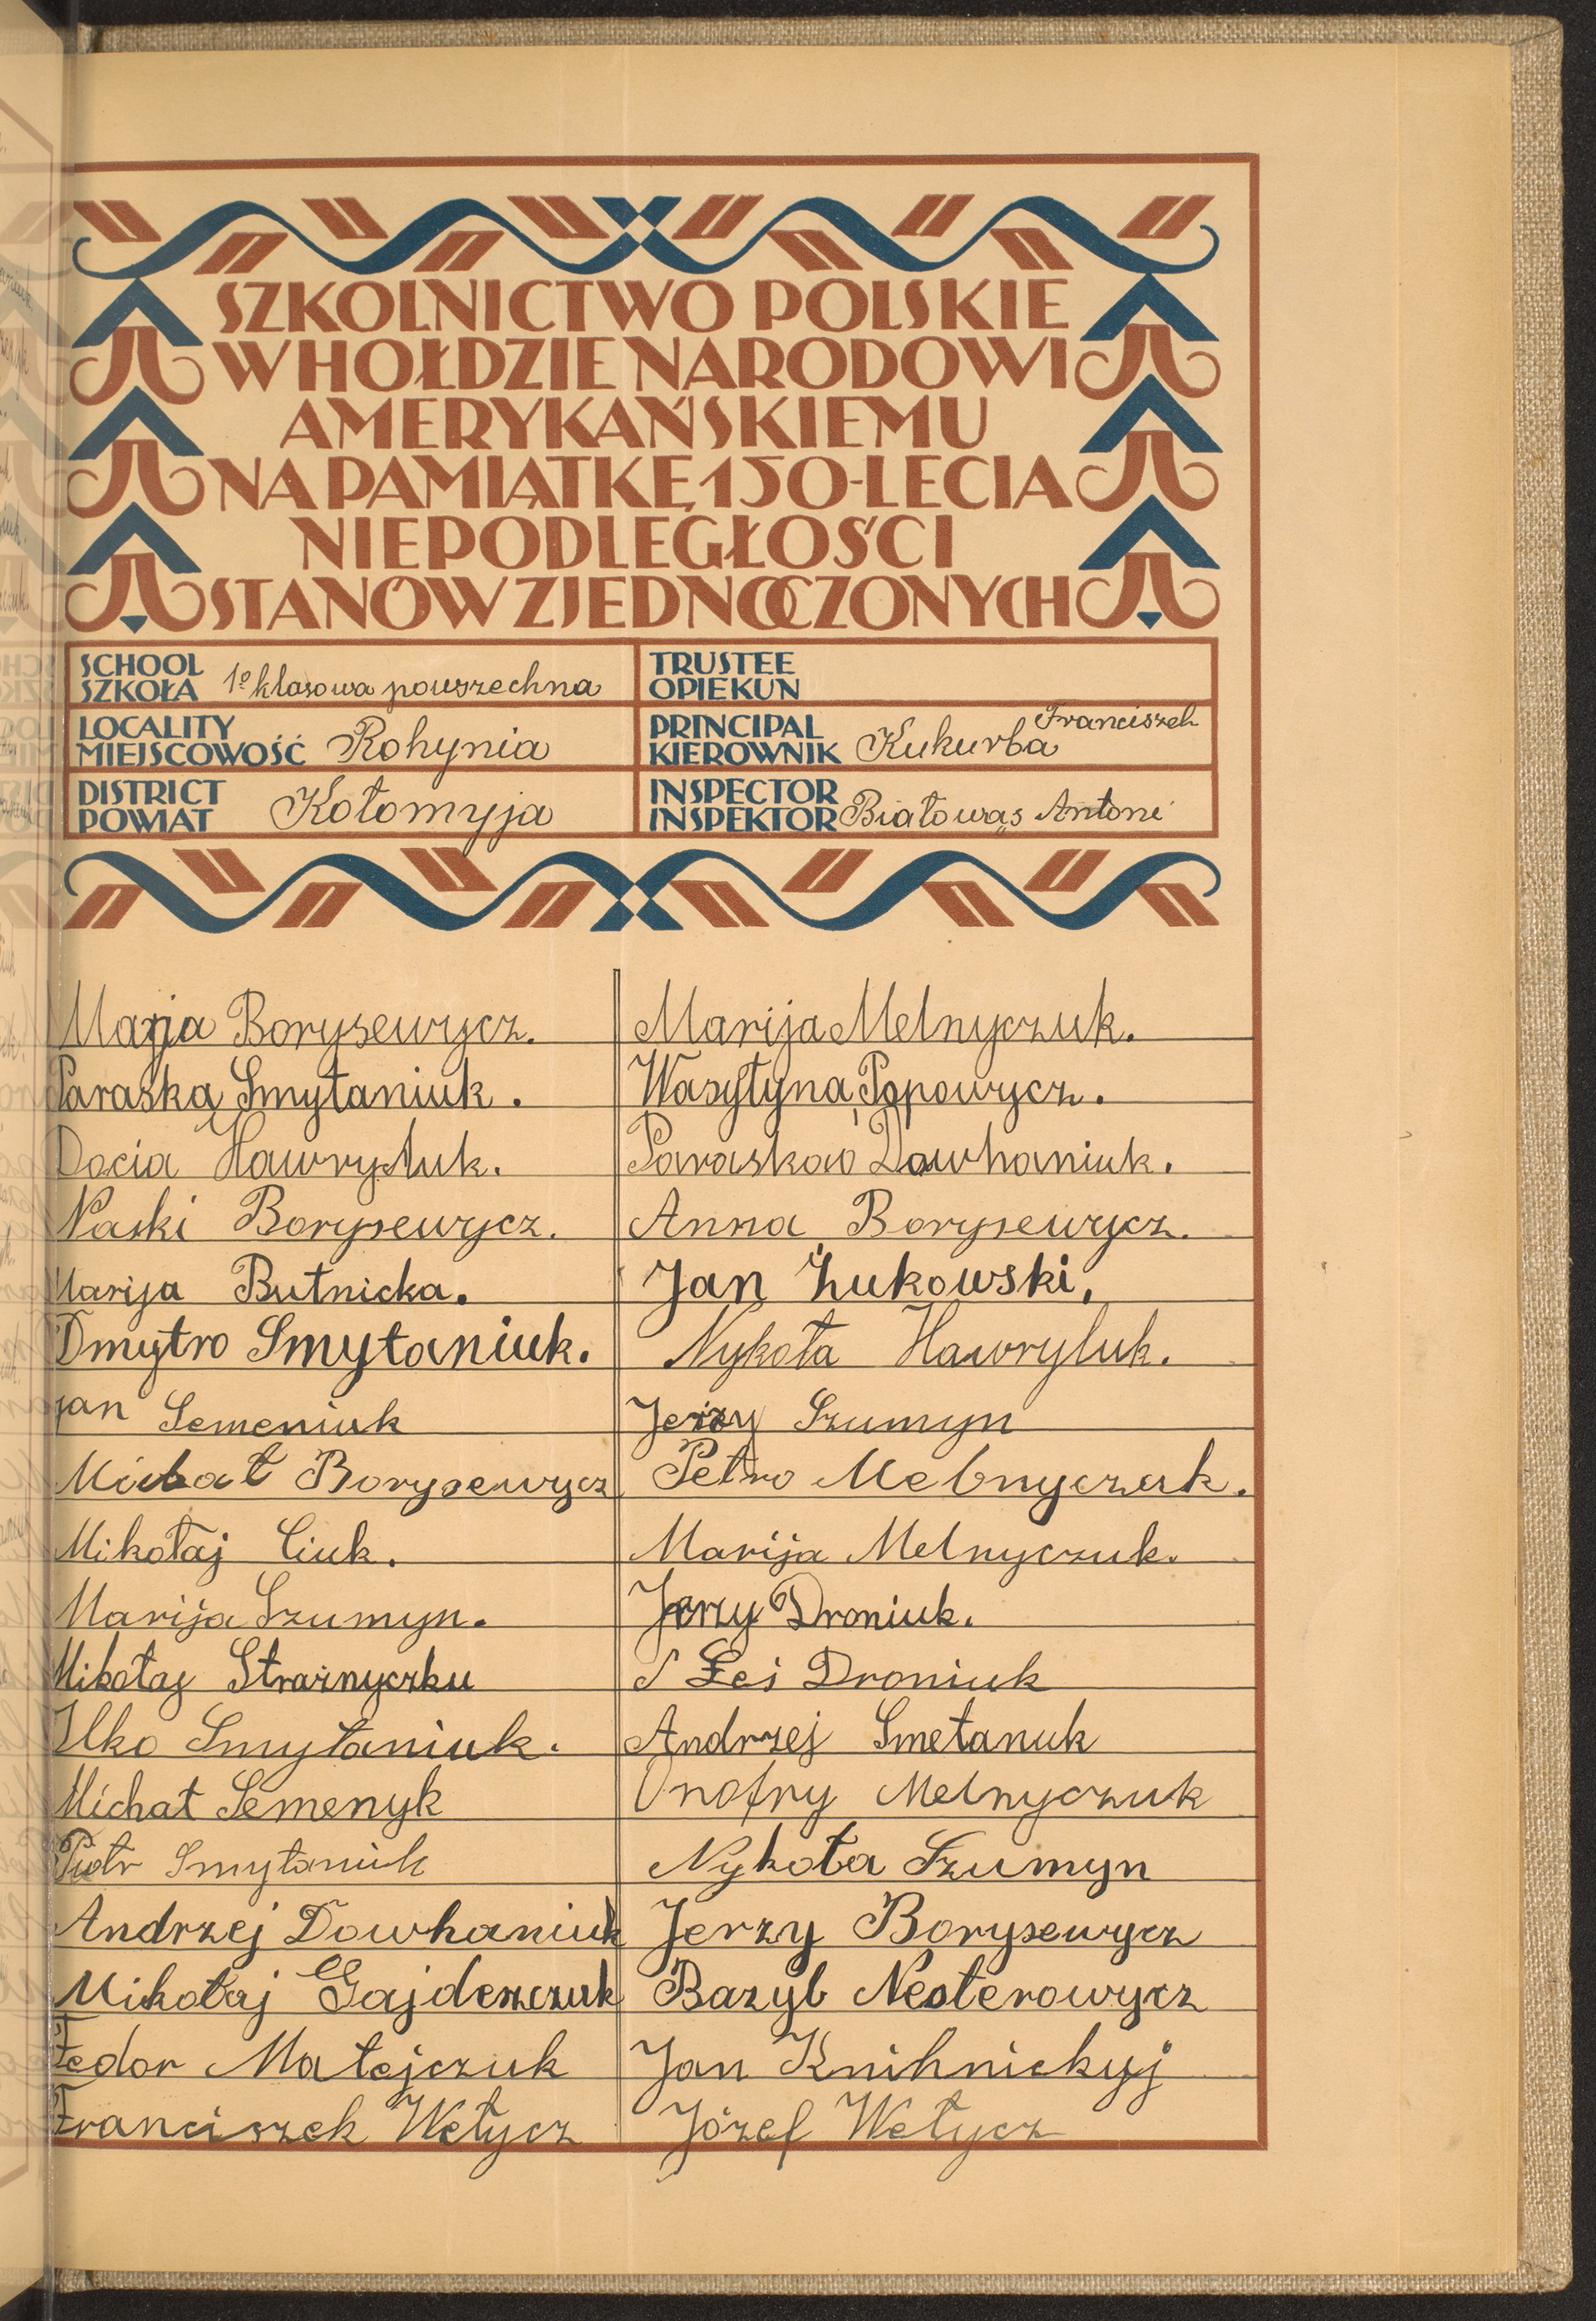 SZKOLNICTWO POLSKIE
W HOŁDZIE NARODOWI
AMERYKAŃSKIEMU
NA PAMIĄTKĘ 150-LECIA
NIEPODLEGŁOŚCI
STANÓW ZJEDNOCZONYCH
SCHOOL
SZKOŁA 1º klasowa powszechna
TRUSTEE
OPIEKUN
LOCALITY
MIEJSCOWOŚĆ Rohynia
PRINCIPAL
KIEROWNIK Kukurba Franciszek
DISTRICT
POWIAT Kołomyja
INSPECTOR
INSPEKTOR Białowąs Antoni
Marja Borysewycz.
Paraska Smytaniuk.
Docia Hawryłuk.
Naski Borysewycz.
Marija Butnicka.
Dmytro Smytaniuk.
Jan Semeniuk
Michał Borysewycz
Mikołaj Ciuk.
Marija Szumyn.
Mikołaj Strażnyczku
Ilko Smytaniuk.
Michał Semenyk
Piotr Smytaniuk
Andrzej Dowhaniuk
Mikołaj Gajdeszczuk
Fedor Matejczuk
Franciszek Wełycz
Marija Melnyczuk.
Wasyłyna Popowycz.
Paraska Dowhaniuk.
Anna Borysewycz.
Jan Żukowski.
Nykoła Hawryluk.
Jerzy Szumyn
Petro Melnyczuk.
Marija Melnyczuk.
Jerzy Droniuk.
Leś Droniuk
Andrzej Smetanuk
Onofry Melnyczuk
Nykoła Szumyn
Jerzy Borysewycz
Bazyl Nesterowycz
Jan Knihnickyj
Józef Wełycz